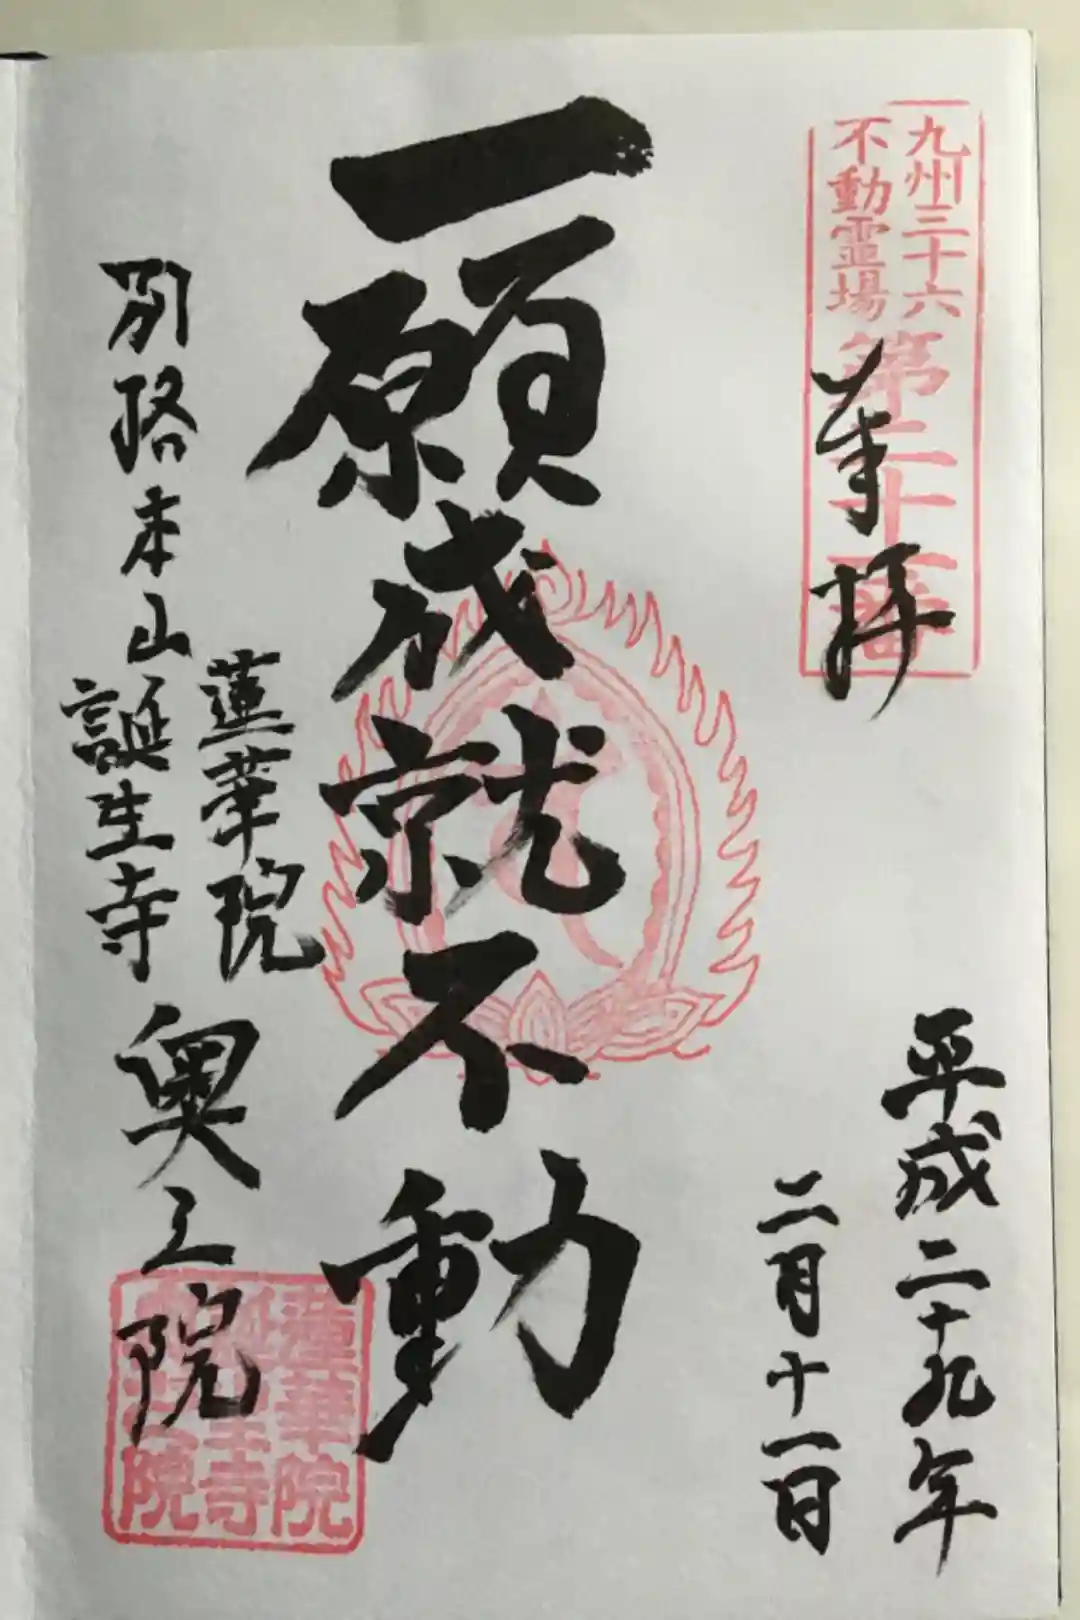 九州三十六
不動霊場
第二十番
奉拝
平成二十九年
二月十一日
一願成就不動
別格本山
蓮華院
誕生寺
奥之院
蓮華院
誕生寺
奥之院